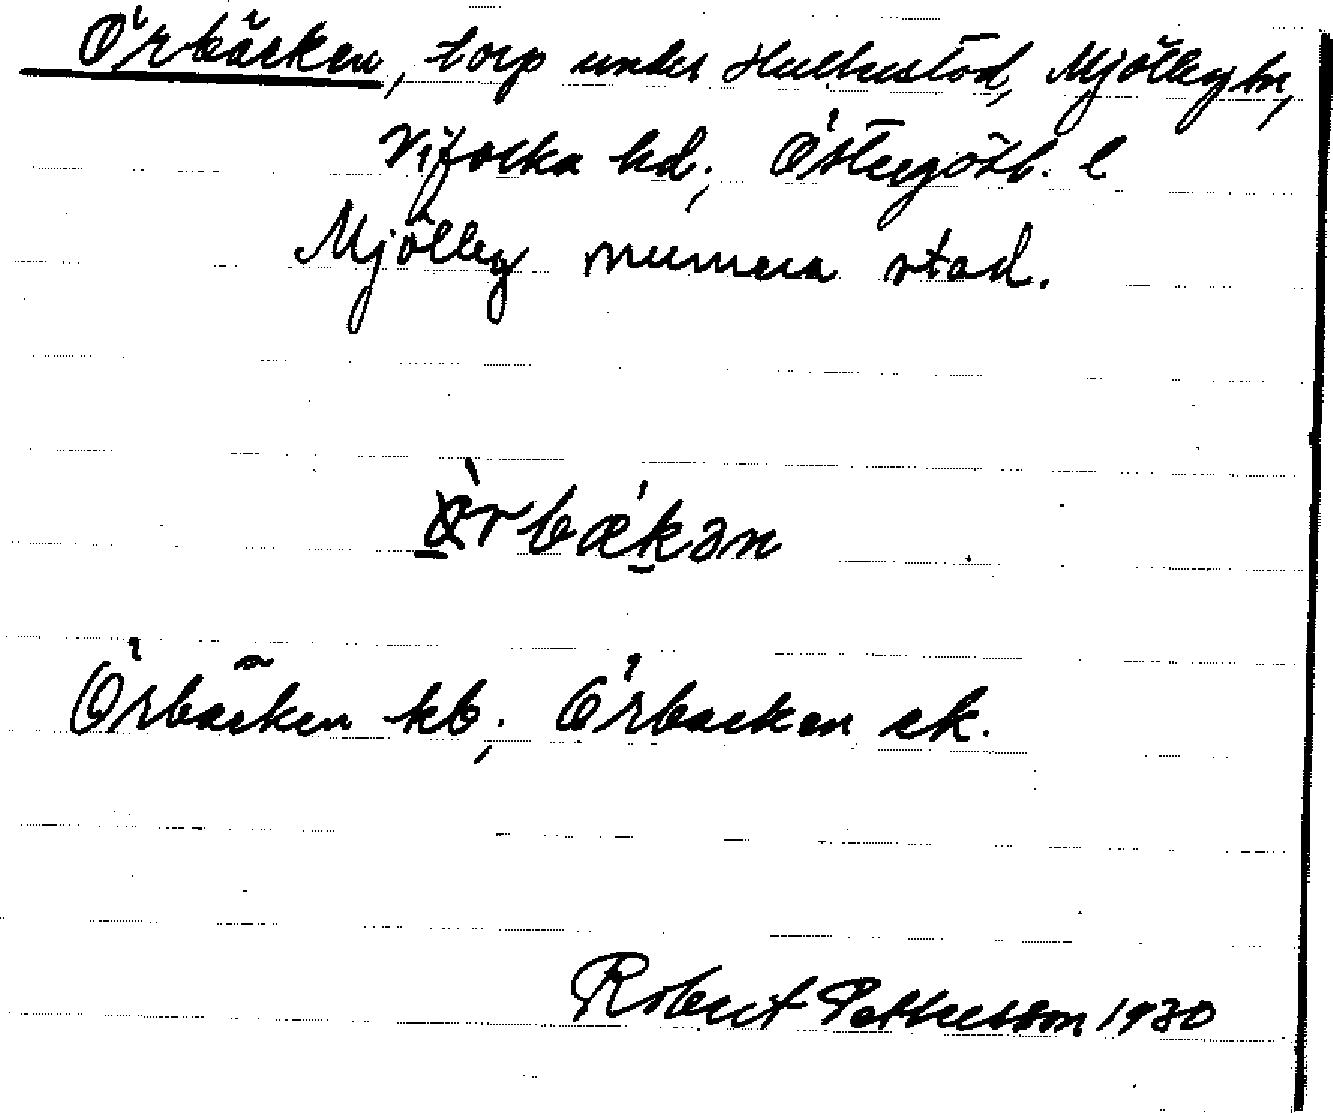 Örbäcken, torp under Hulterstad, Mjölby sn,
Vifolka hd., Östergötl. l
Mjölby numera stad.
bækən
Örbäcken kb., Örbacken ek.
Robert Pettersson 1930